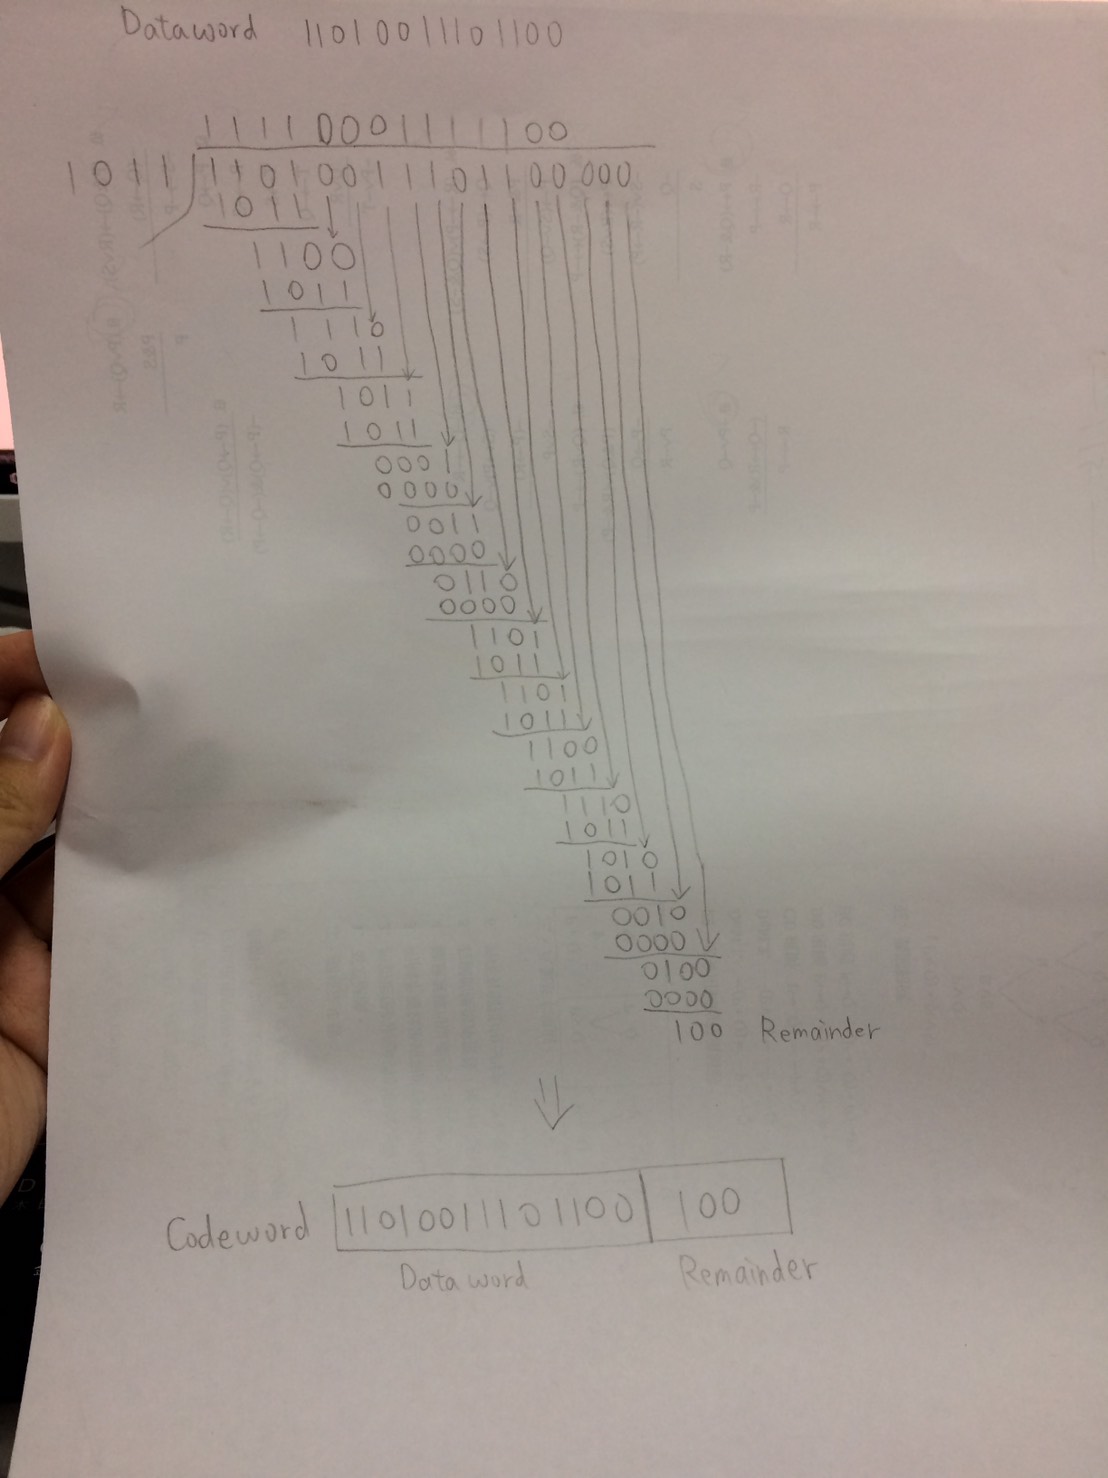 Dataword 11010011101100
11110001111100
1011 11010011101100000
1011
1100
1011
1110
1011
1011
1011
0001
0000
0011
0000
0110
0000
1101
1011
1101
1011
1100
1011
1110
1011
1010
1011
0010
0000
0100
0000
100 Remainder
Codeword 11010011101100 100
Dataword Remainder